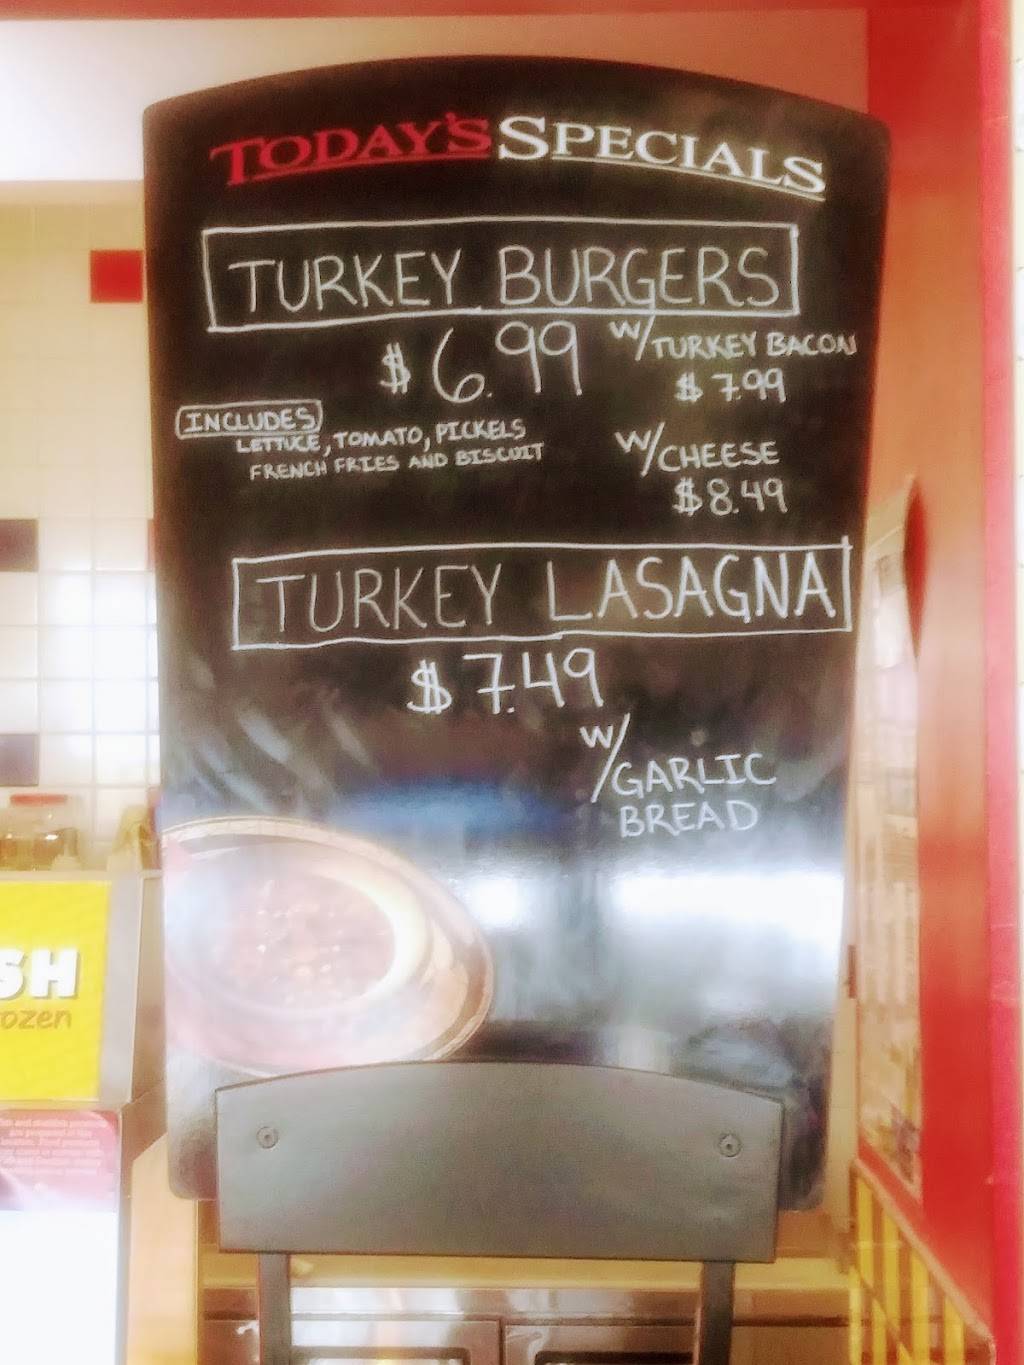 TODAY'S SPECIALS
TURKEY BURGERS
$6.99
w/TURKEY BACON
$7.99
INCLUDES
LETTUCE, TOMATO, PICKELS
FRENCH FRIES AND BISCUIT
w/CHEESE
$8.49
TURKEY LASAGNA
$7.49
w/GARLIC
BREAD
SH
ozen